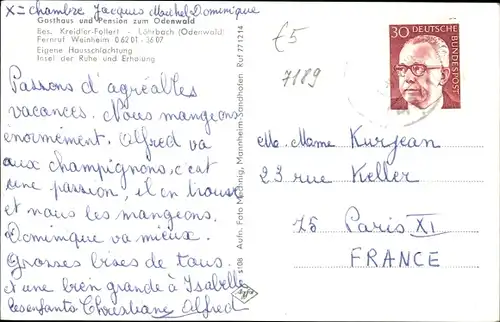 X = chambre Jacques Michel Dominique
Gasthaus und Pension zum Odenwald
Bes. Kreidler-Follert - Löhrbach (Odenwald)
Fernruf Weinheim 06201 - 3607
Eigene Hausschlachtung
Insel der Ruhe und Erholung
Passons d'agréables
vacances. Nous mangeons
énormément. Alfred va
aux champignons, c'est
une passion, il en trouve
et nous les mangeons.
Dominique va mieux.
Grosses bises de tous
et une bien grande à Isabelle
les enfants Christiane Alfred
5108 Aufn. Foto Mechnig, Mannheim-Sandhofen Ruf 771214
£5
7189
30
DEUTSCHE
BUNDESPOST
M. Mame Kurjean
23 rue Keller
75 Paris XI
FRANCE